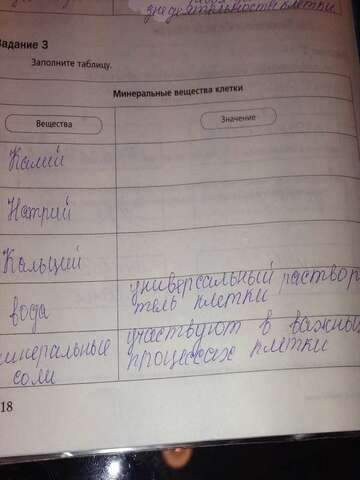 знедеятельности клетки
Задание 3
Заполните таблицу.
Минеральные вещества клетки
Вещества
Значение
Калий
Натрий
Кальций
вода
универсальный раствор
тель клетки
минеральные
соли
участвуют в важных
процессах клетки
18